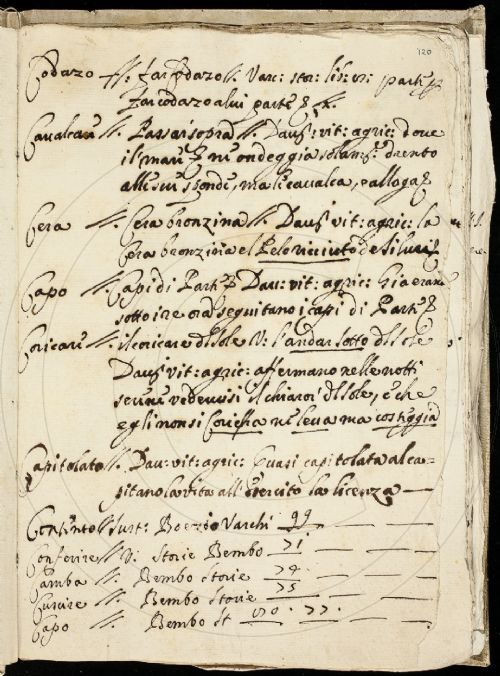 120
Codazo //. far codazo //. Varc: stor: lib: parte
far codazo alui parte
Cavalcare //. Passar sopra //. Dav: vit: agric: dove
il mare non ondeggia solam: drento
alle sue sponde, ma li cavalca, e alloga
Cera //. Cera bronzina //. Dav: vit: agric: la
Cera bronzina el Pelo ricciuto de Siluri
Capo //. Capi di Parte Dav: vit: agric: Gia erano
sotto i re ora seguitano i capi di Parte
Coricare //. il coricare del sole V: l'andar sotto del sole
Dav: vit: agric: affermano nelle notti
serene vedervisi il chiaror del sole, e che
egli non si Corica ne leva ma costeggia
Capitolato //. Dav: vit: agric: Quasi capitolata al ca=
pitano la vita all'esercito la licenza
Contento // sust: Boezio Varchi 99
Conferire // V: Storie Bembo 71
Gamba //. Bembo Storie 74
Cucire //. Bembo Storie 75
Capo //. Bembo St 77.